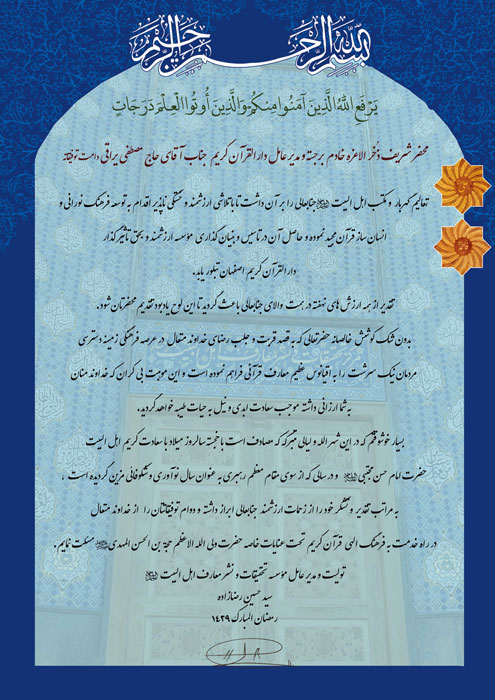 بسم الله الرحمن الرحیم
يَرْفَعِ اللهُ الَّذِينَ آمَنُوا مِنكُمْ وَالَّذِينَ أُوتُوا الْعِلْمَ دَرَجَاتٍ
محضر شریف ذخر الاعزه خادم برجسته و مدیر عامل دار القرآن کریم جناب آقای حاج مصطفی یراقی دامت توفیقاته
تعالیم گهربار و مکتب اهل البیت جنابعالی را بر آن داشت تا با تلاشی ارزشمند و خستگی ناپذیر اقدام به توسعه فرهنگ نورانی و
انسان ساز قرآن مجید نموده و حاصل آن در تاسیس و بنیان گذاری مؤسسه ارزشمند و بحق تأثیرگذار
دار القرآن کریم اصفهان تبلور یابد.
تقدیر از همه ارزش های نهفته در همت والای جنابعالی باعث گردید تا این لوح یادبود تقدیم محضرتان شود.
بدون شک کوشش خالصانه حضرتعالی که به قصد قربت و جلب رضای خداوند متعال در عرصه فرهنگی زمینه دسترسی
مردمان نیک سرشت را به اقیانوس عظیم معارف قرآنی فراهم نموده است و این موهبت بی کران که خداوند منان
به شما ارزانی داشته موجب سعادت ابدی و نیل به حیات طیبه خواهد گردید.
بسیار خوشوقتم که در این شهر الله و لیالی متبرکه که مصادف است با خجسته سالروز میلاد با سعادت کریم اهل البیت
حضرت امام حسن مجتبی و در سالی که از سوی مقام معظم رهبری به عنوان سال نوآوری و شکوفائی مزین گردیده است ،
به مراتب تقدیر و تشکر خود را از زحمات ارزشمند جنابعالی ابراز داشته و دوام توفیقاتتان را از خداوند متعال
در راه خدمت به فرهنگ الهی قرآن کریم تحت عنایات خاصه حضرت ولی الله الاعظم حجة بن الحسن المهدی مسئلت نمایم .
تولیت و مدیر عامل مؤسسه تحقیقات و نشر معارف اهل البیت
سید حسین رضازاده
رمضان المبارک ۱۴۲۹